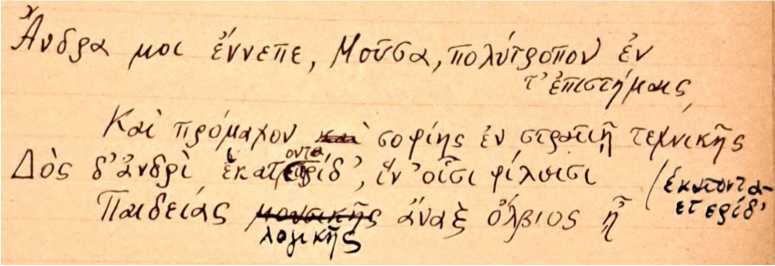 Ἄνδρα μοι ἔννεπε, Μοῦσα, πολύτροπον ἐν
τ' ἐπιστήμαις,
Καὶ πρόμαχον καὶ σοφίης ἐν στρατιῇ τεχνικῆς
Δὸς δ' ἀνδρὶ ἑκατονταερίδ', ἵν' οἷσι φίλοισι
(ἑκατοντα-
ετερίδ'
Παιδείας μουσικῆς ἄναξ ὄλβιος ᾖ
λογικῆς